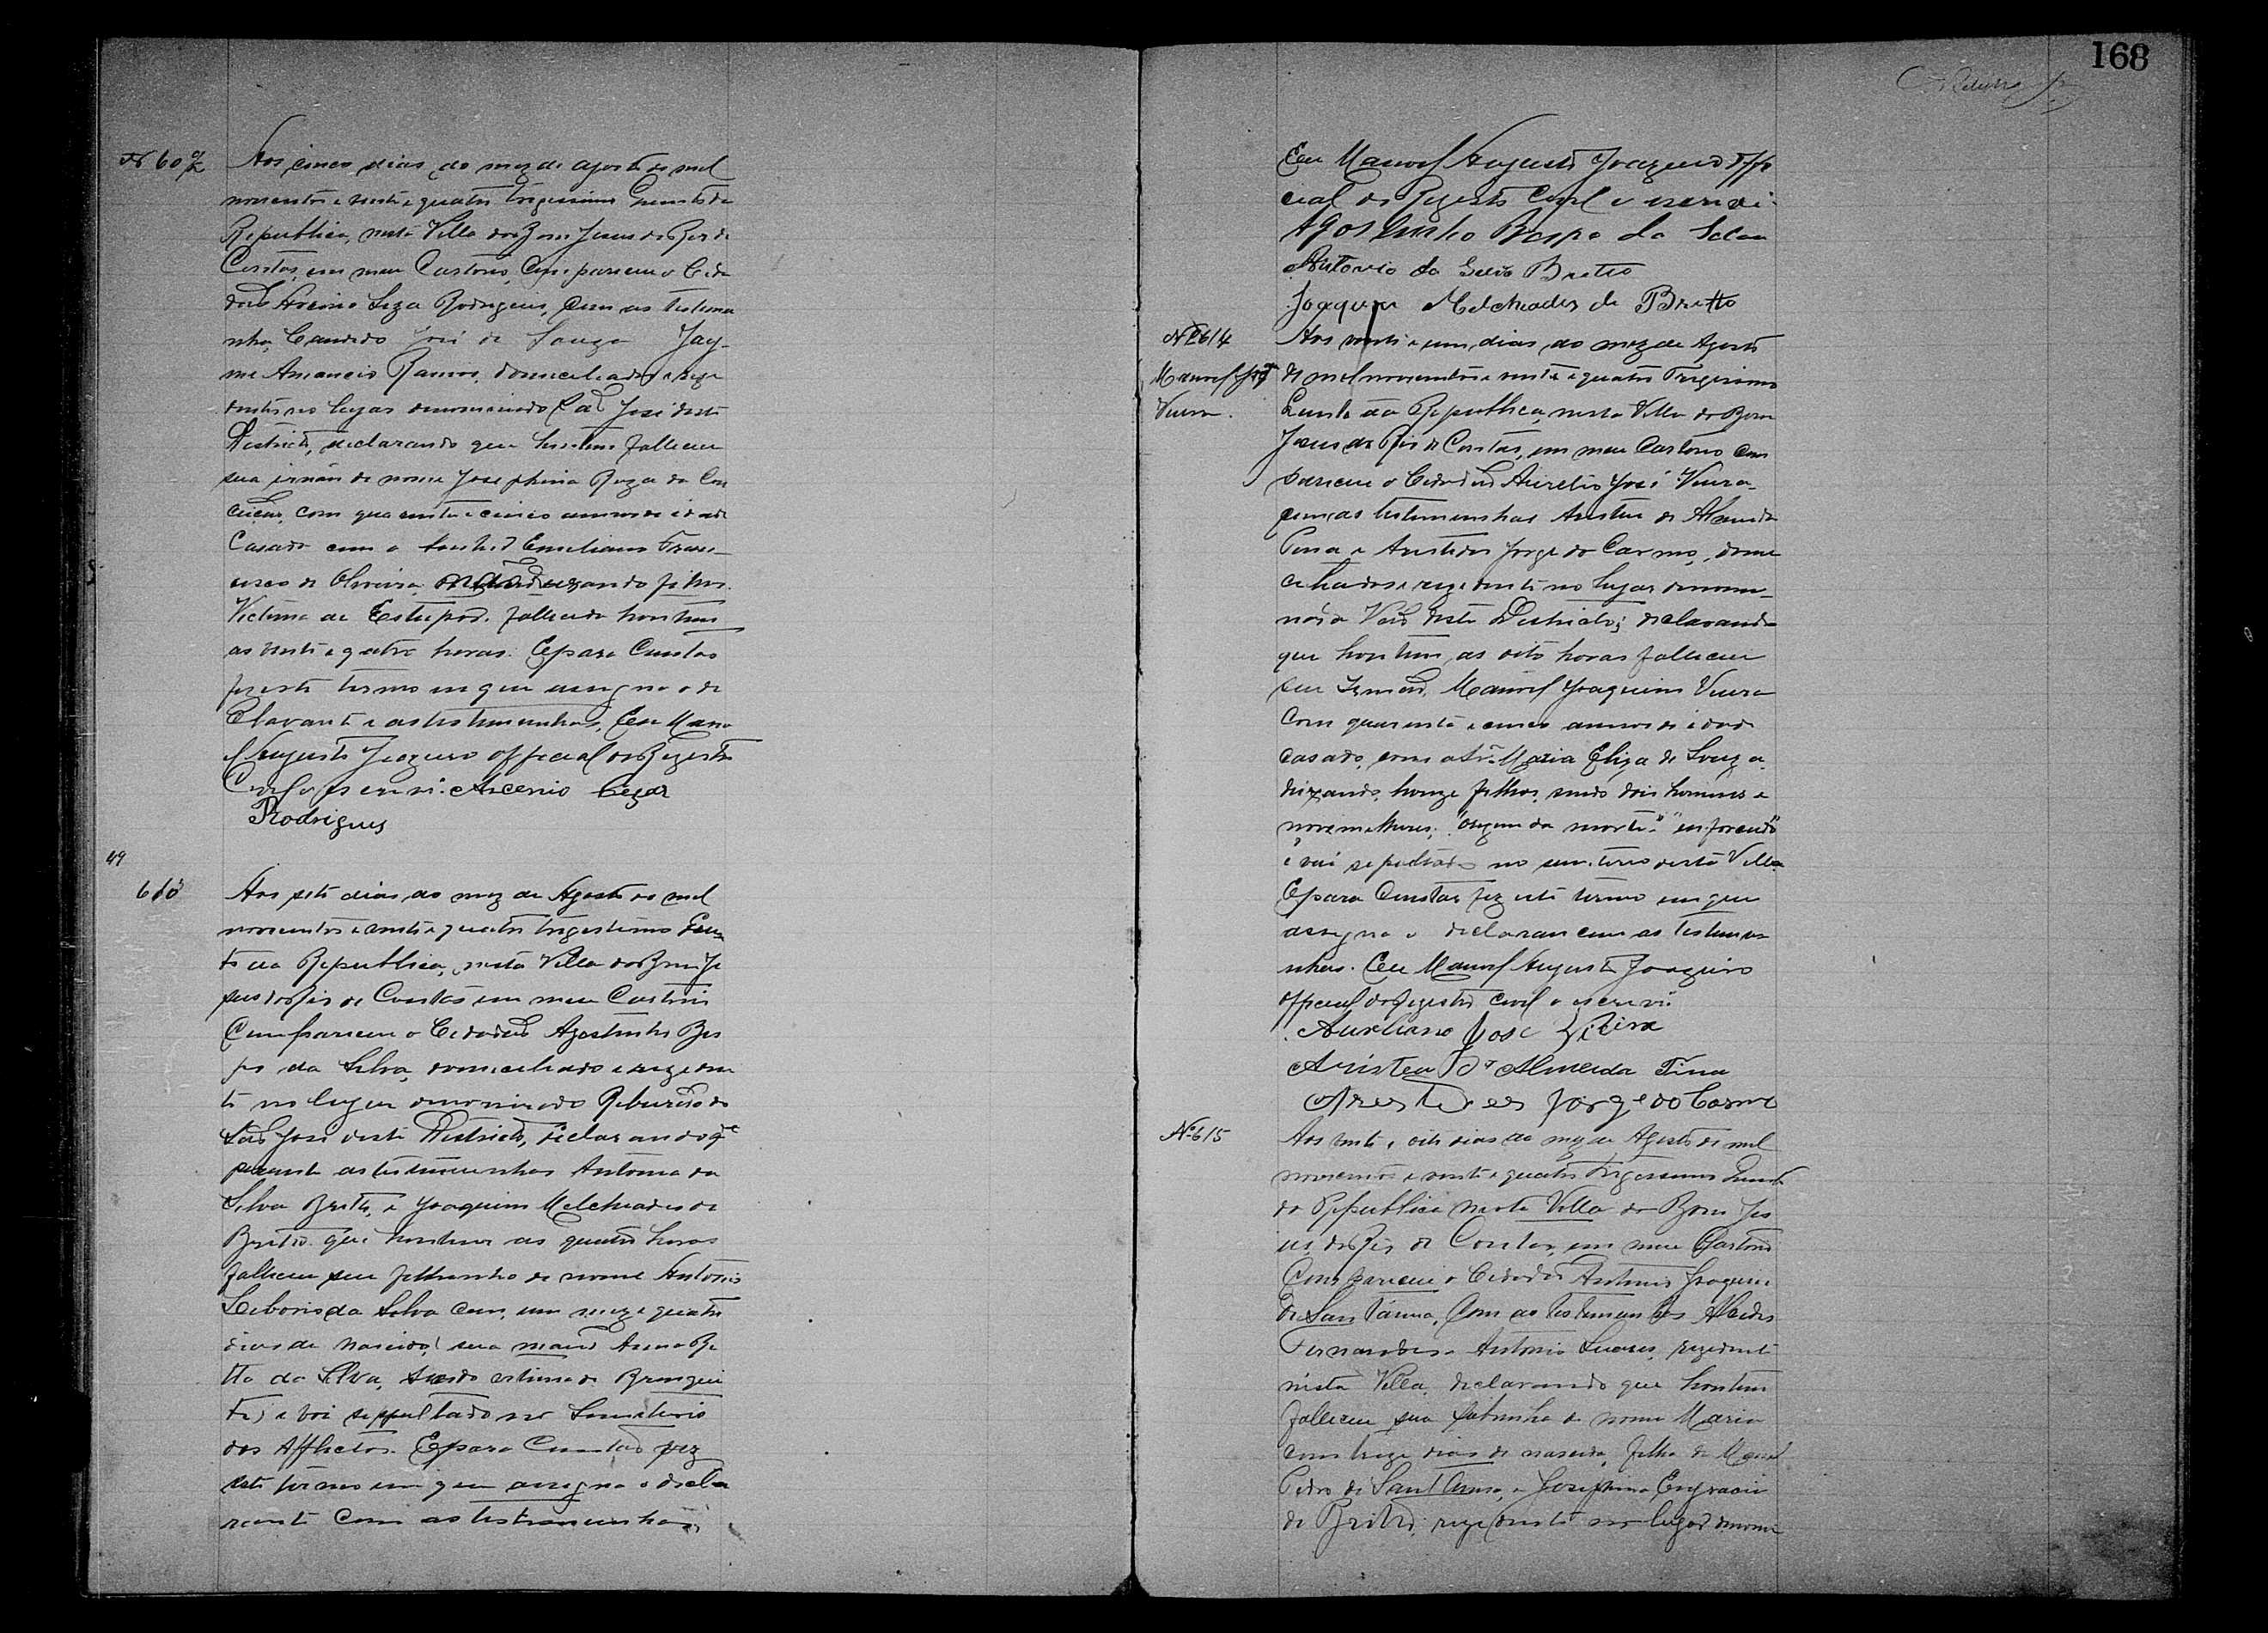 168
Nº 609
Aos cinco dias do mez de agosto de mil
novecentos e vinte e quatro trigessimo Quinto da
Republica, nesta Villa do Bom Jesus do Rio de
Contas, em meu Cartorio, Compareceu o Cida
dão Ascenio Rodrigues, com as testemu
nhas Candido José de Souza Jay
me Amancio Ramos, domiciliados e rezi
dentes no lugar denominado São José deste
Districto, declarando que hontem falleceu
sua irmán de nome Josephina Roza da Con
ceição, com quarenta e cinco annos de idade
Casada com o Senhor Emiliano Fran
cisco de Oliveira, não deixando filhos.
Victima de Estupor. fallecida hontem
as vinte e quatro horas. E para Constar
fiz este termo em que assigna o de
Clarante e as testemunhas, Eu Mano
el Augusto Joazeiro official do Registro
Civil o escrevi. Ascenio
Rodrigues
49
610
Aos sete dias do mez de Agosto de mil
novecentos e vinte e quatro trigestimo Quin
to da Republica, nesta Villa do Bom Je
sus do Rio de Contas em meu Cartorio
Compareceu o Cidadão Agostinho Bes
pa da Silva, domiciliado e reziden
te no lugar denominado do
São José deste Districto, declarando qe
perante as testemunhas Antonio da
Silva Britto, e Joaquim Melchiades de
Britto que hontem as quatro horas
falleceu seu filhinho de nome Antonio
Liborio da Silva com um mez e quatro
dias de nascido, sua maei Anna Ri
tta da Silva, sendo victima de Bronqui
te, e voi seppultado no Semiterio
dos Afflictos. E para Constar fiz
este termo em que assigna o decla
rante com as testemunhas
Eu Manoel Augusto Joazeiro Offi
cial do Registro Civil o escrevi.
Agostinho Bespa da Silva
Antonio da Silva Britto
Joaquim Melchiades de Britto
Nº 614
Manoel Joqm
Vieira.
Aos vinte e um dias do mez de Agosto
de mil novecentos e vinte e quatro Trigessimo
Quinto da Republica, nesta Villa do Bom
Jesus do Rio de Contas, em meu Cartorio com
pareceu o Cidadão Aurelio José Vieira
com as testemunhas Aristeu de Almeida
Pina e Aristides Jorge do Carmo, domi
ciliados e rezidente no lugar denomi
nado deste Districto; declarando
que hontem as oito horas falleceu
seu Irmão, Manoel Joaquim Vieira
Com quarenta e cinco annos de idade
casado, com a Srª Maria Eliza de Souza
deixando, honze filhos, sendo dois homens e
nove mulheres; "origem da morte" "enforcado"
e voi sepultado no semiterio desta Villa.
E para Constar fiz este termo em que
assigna o declaran com as testemu
nhas. Eu Manoel Augusto Joazeiro
official do Registro Civil o escrevi.
Aureliano José Vieira
Aristeu de Almeida Pina
Aristides Jorge do Carmo
Nº 615
Aos vinte e oito dias do mez de Agosto de mil
novecentos e vinte e quatro Trigessimo Quinto
da Republica nesta Villa do Bom Jes
us do Rio de Contas, em meu Cartorio
Compareceu o Cidadão Antonio Joaquim
de San tánna, Com as testemunhas Alcides
Fernandes e Antonio Soares, rezidente
nesta Villa, declarando que hontem
falleceu sua sobrinha de nome Maria
com treze dias de nascida, filha de Manoel
Pedro de Sant Anna, e Josephina Engracia
de Britto, rezidente no lugar denomi